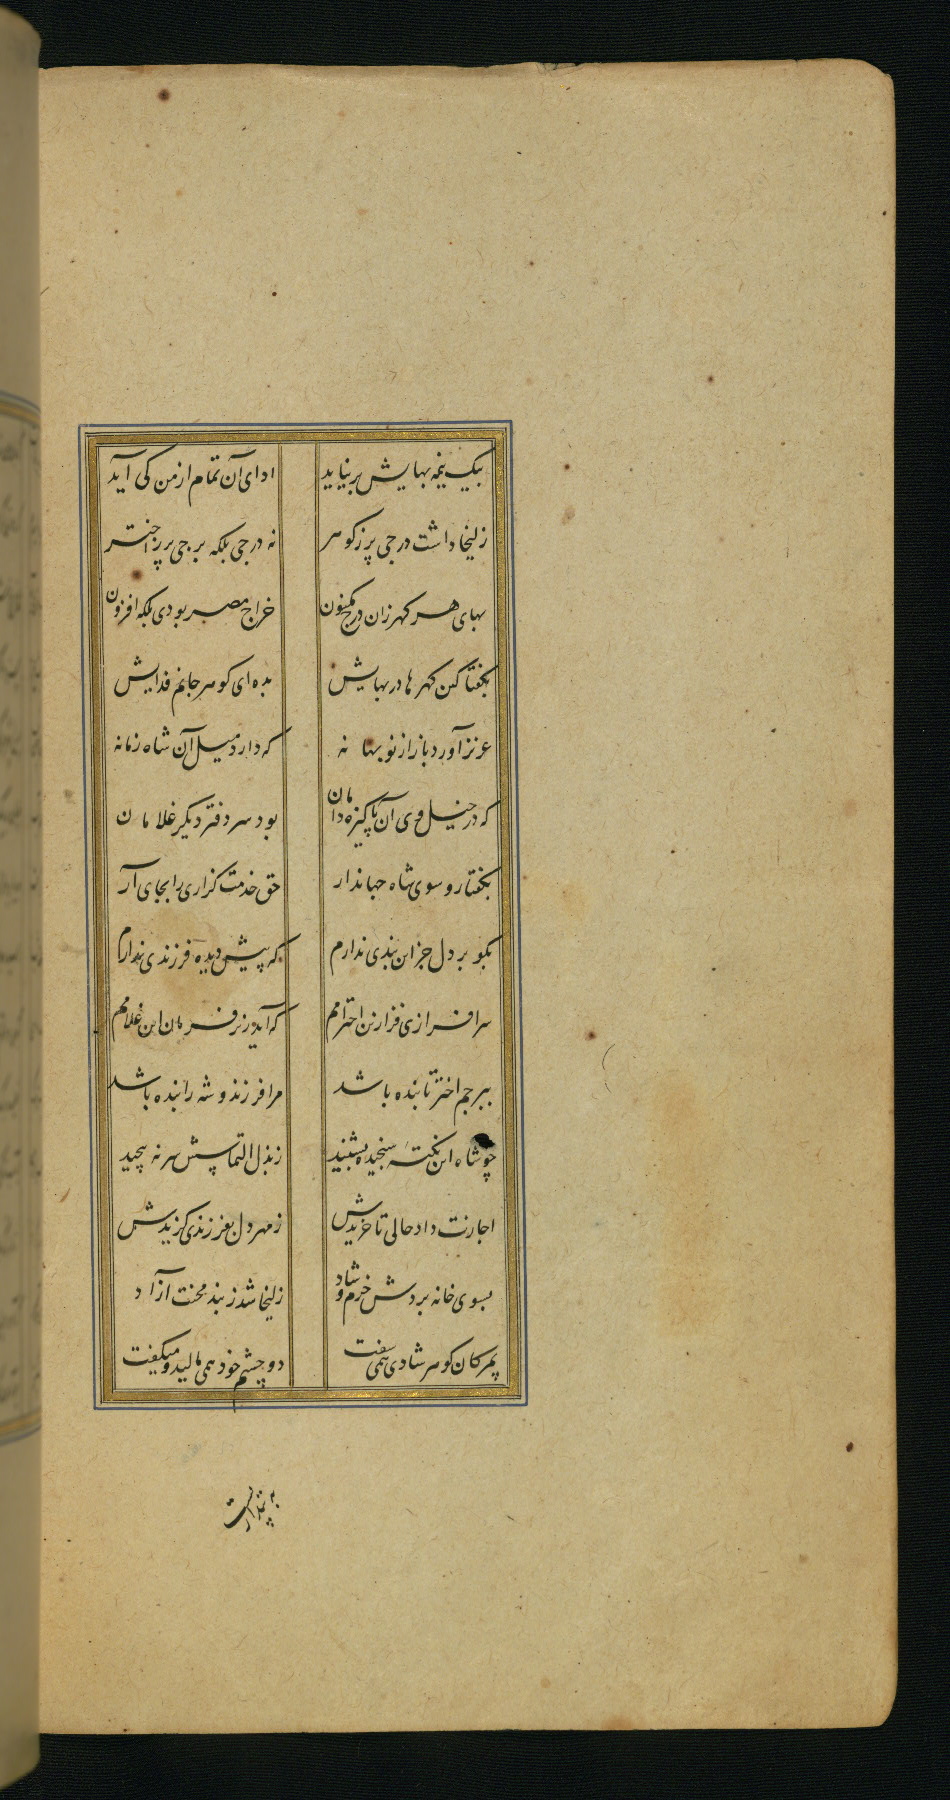 بیک نیمه بهایش برنیاید ادای آن تمام از من کی آید
زلیخا داشت درجی پر زکوهر نه درجی بلکه برجی پر ز اختر
بهای هر کهر زان درج مکنون خراج مصر بودی بلکه افزون
بکفتا کین کهرها در بهایش بده ای کوهر جانم فدایش
عزیز آورد باز از نو بهانه که دارد میل آن شاه زمانه
که در خیل وی آن پاکیزه دامان بود سر دفتر دیکر غلامان
بکفتا رو سوی شاه جهاندار حق خدمت کزاری را بجای آر
بکو بر دل جز این بندی ندارم که پیش دیده فرزندی ندارم
سرافرازی فزا زین احترامم که آید زیر فرمان این غلامم
ببرجم اختر تابنده باشد مرا فرزند و شه را بنده باشد
چو شاه این نکته سنجیده بشنید ز بذل التماسش سر نه پیچید
اجازت داد حالی تا خریدش ز مهر دل بفرزندی کزیدش
بسوی خانه بردش خرم و شاد زلیخا شد ز بند محنت آزاد
بمژکان کوهر شادی همی سفت دو چشم خود همی مالید و میکفت
به پندار